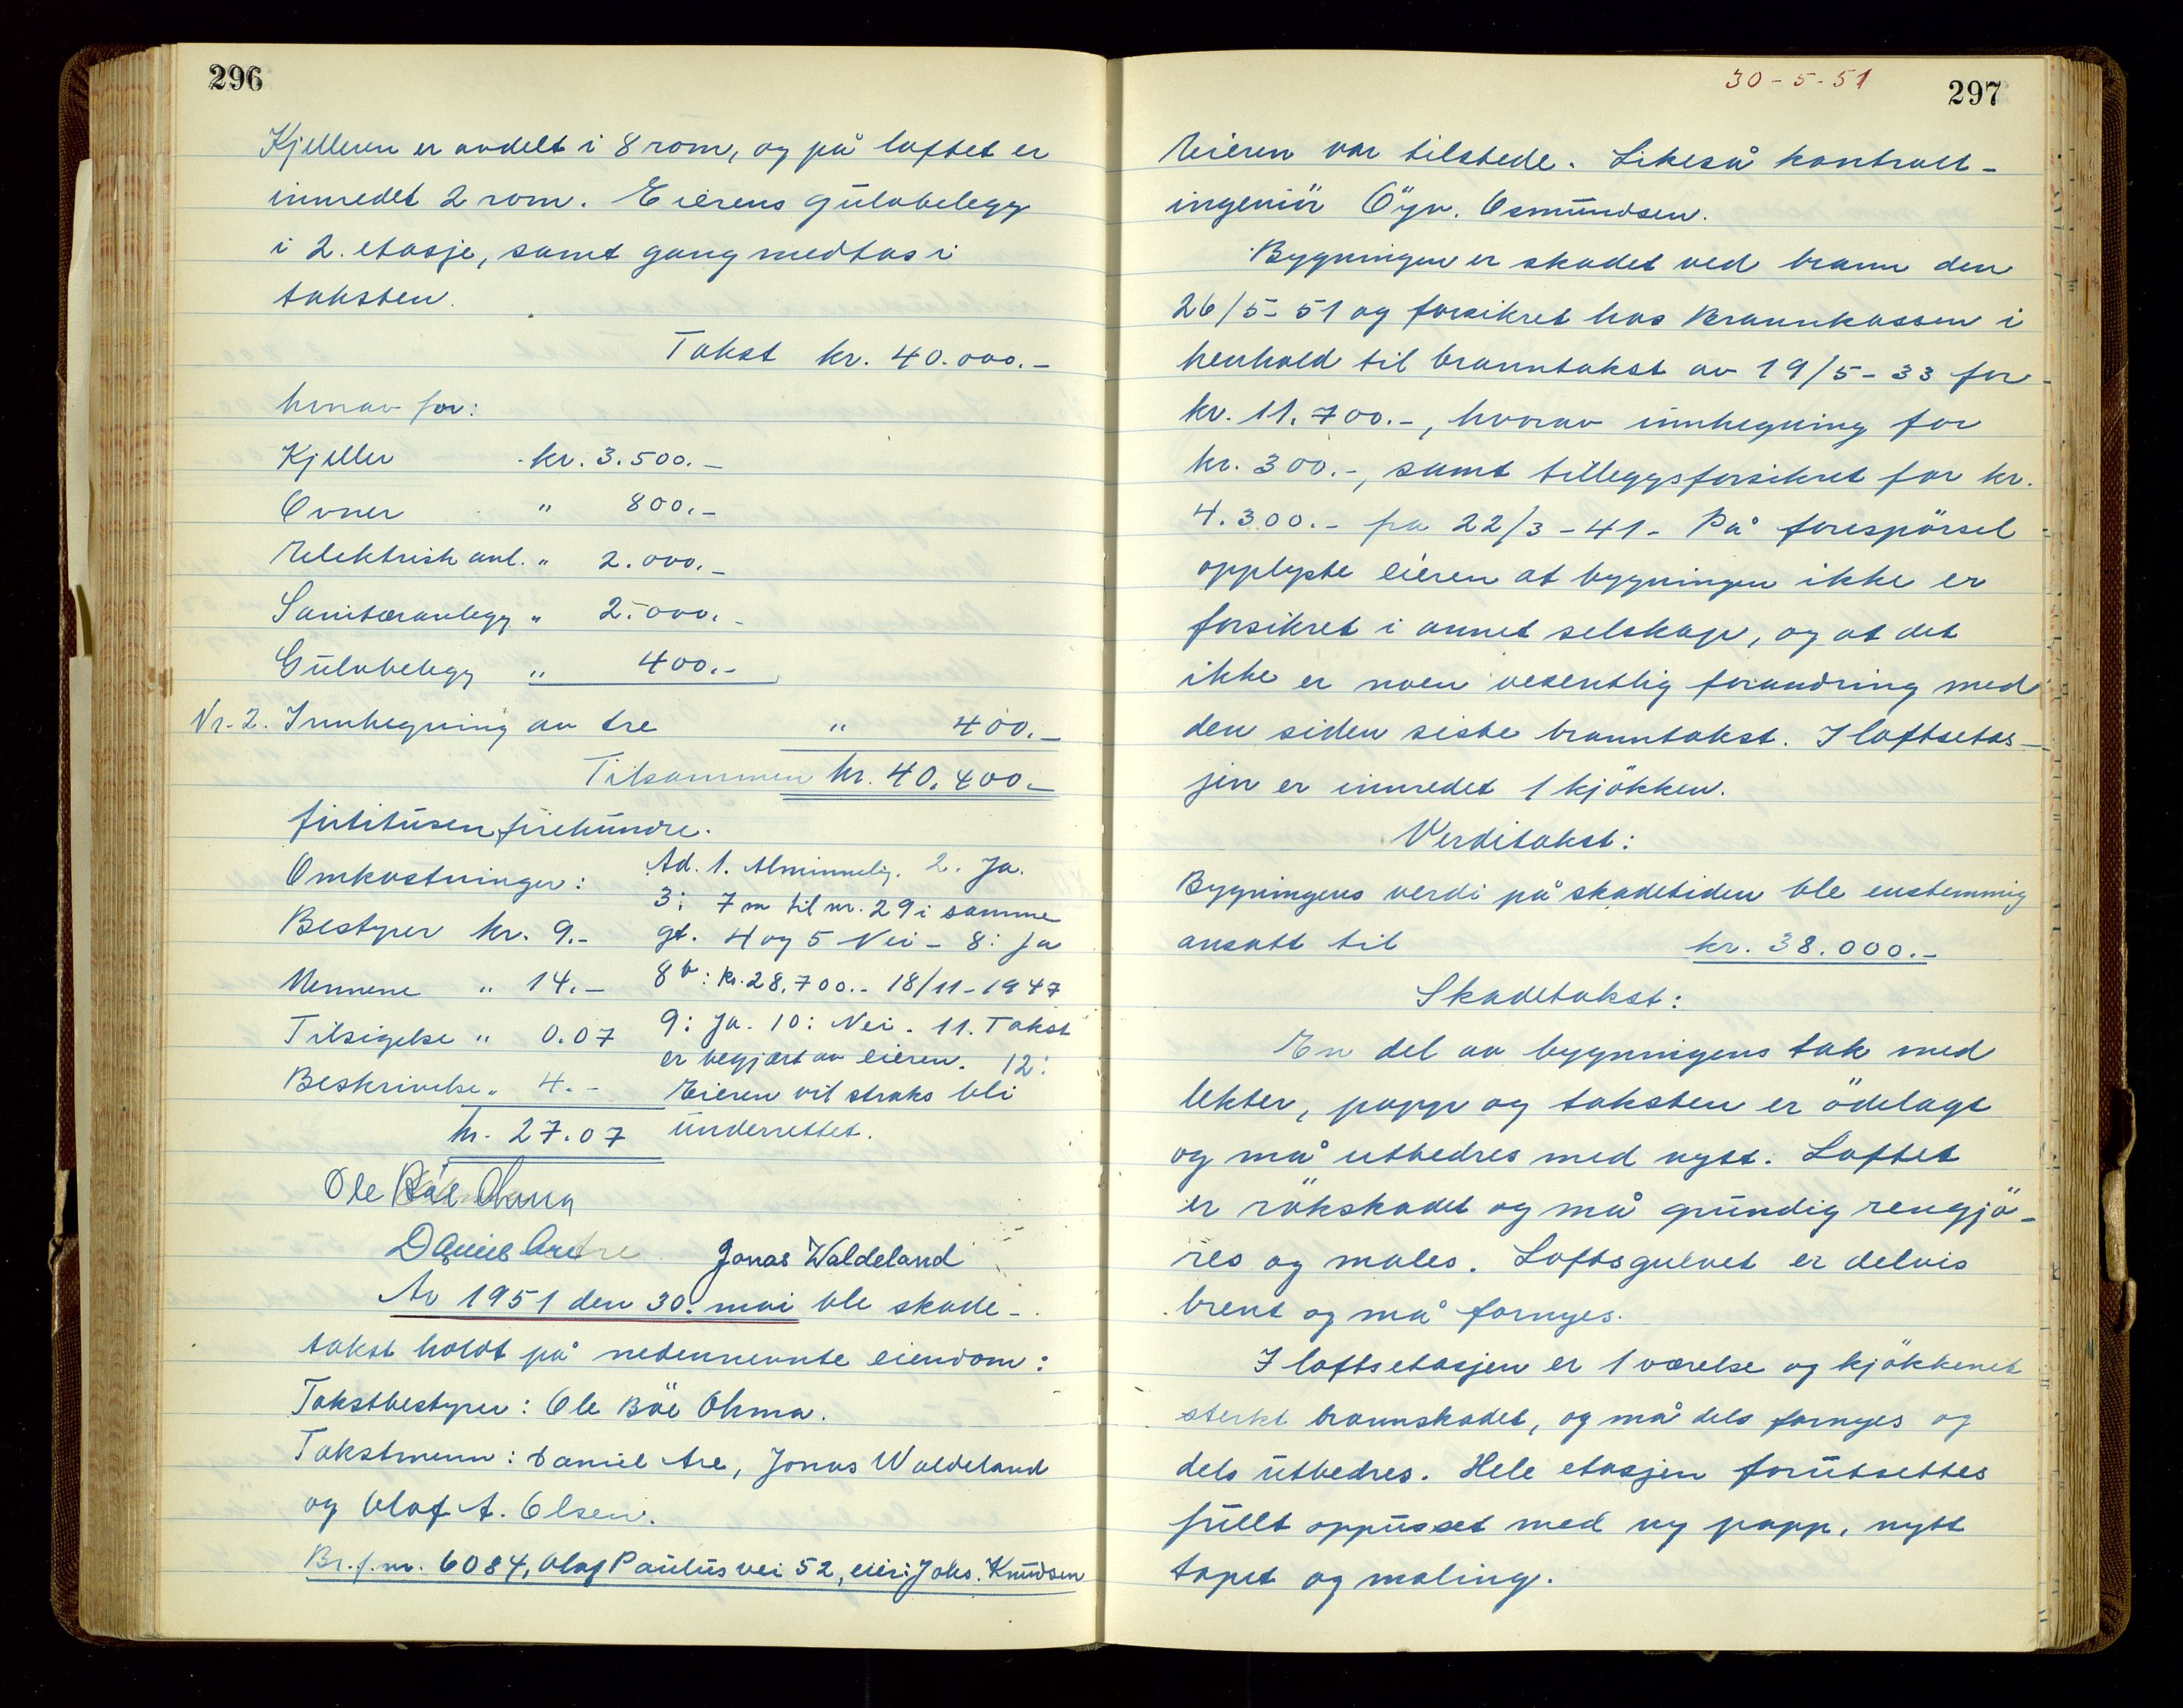 296
Kjelleren er avdelt i 8 rom, og på loftet er
innredet 2 rom. Eierens gulvbelegg
i 2. etasje, samt gang medtas i
taksten.
Takst kr. 40.000.-
herav for:
Kjeller kr. 3.500.-
Ovner " 800.-
Elektrisk anl. " 2.000.-
Sanitæranlegg " 2.000.-
Gulvbelegg " 400.-
Nr. 2. Innhegning av tre " 400.-
Tilsammen kr. 40.400.-
firtitusen firehundre.
Omkostninger:
Bestyrer kr. 9.-
Mennene " 14.-
Tilsigelse " 0.07
Beskrivelse " 4.-
kr. 27.07
Ad. 1. Alminnelig. 2. Ja.
3: 7 m til nr. 29 i samme
gt. 4 og 5 Nei - 8: Ja
8b: kr. 28.700.- 18/11-1947
9: Ja. 10: Nei. 11. Takst
er begjært av eieren. 12:
Eieren vil straks bli
underrettet.
Ole Böe Ohma
Daniel Are Jonas Waldeland
År 1951 den 30. mai ble skade-
takst holdt på nedennevnte eiendom:
Takstbestyrer: Ole Böe Ohma.
Takstmenn: Daniel Are, Jonas Waldeland
og Olaf A. Olsen.
Br.f.nr. 6084, Olaf Paulus vei 52, eier: Johs. Knudsen
30-5-51
297
Eieren var tilstede. Likeså kontroll-
ingeniör Öyv. Osmundsen.
Bygningen er skadet ved brann den
26/5-51 og forsikret hos Brannkassen i
henhold til branntakst av 19/5-33 for
kr. 11.700.-, hvorav innhegning for
kr. 300.-, samt tilleggsforsikret for kr.
4.300.- fra 22/3-41- På forespörsel
opplyste eieren at bygningen ikke er
forsikret i annet selskap, og at det
ikke er noen vesentlig forandring med
den siden siste branntakst. I loftsetas-
jen er innredet 1 kjökken.
Verditakst:
Bygningens verdi på skadetiden ble enstemmig
ansatt til kr. 38.000.-
Skadetakst:
En del av bygningens tak med
lekter, papp og taksten er ödelagt
og må utbedres med nytt. Loftet
er rökskadet og må grundig rengjö-
res og males. Loftsgulvet er delvis
brent og må fornyes.
I loftsetasjen er 1 værelse og kjökkenet
sterkt brannskadet, og må dels fornyes og
dels utbedres. Hele etasjen forutsettes
fullt oppusset med ny papp, nytt
tapet og maling.